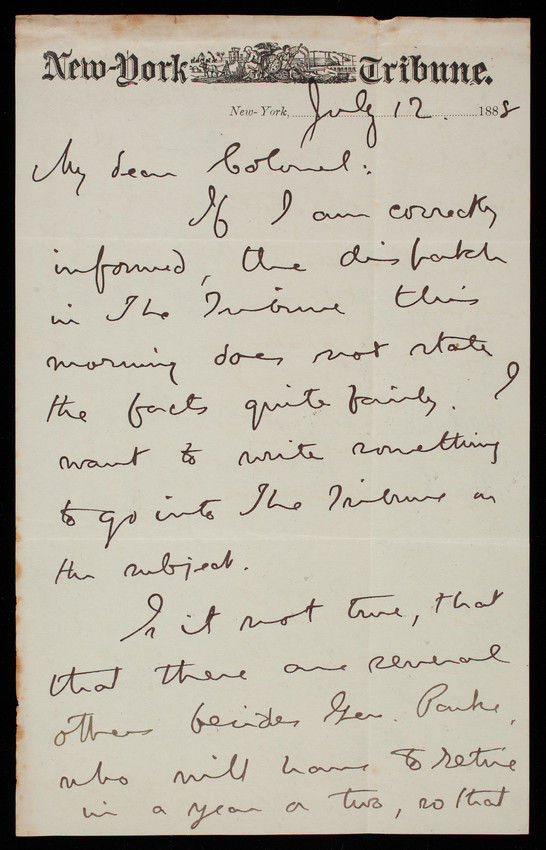 New-York Tribune.
New-York, July 12. 1888
My dear Colonel:
If I am correctly
informed, the dispatch
in The Tribune this
morning does not state
the facts quite fairly. I
want to write something
to go into The Tribune on
the subject.
Is it not true, that
that there are several
others besides Gen. Parke,
who will have to retire
in a year or two, so that